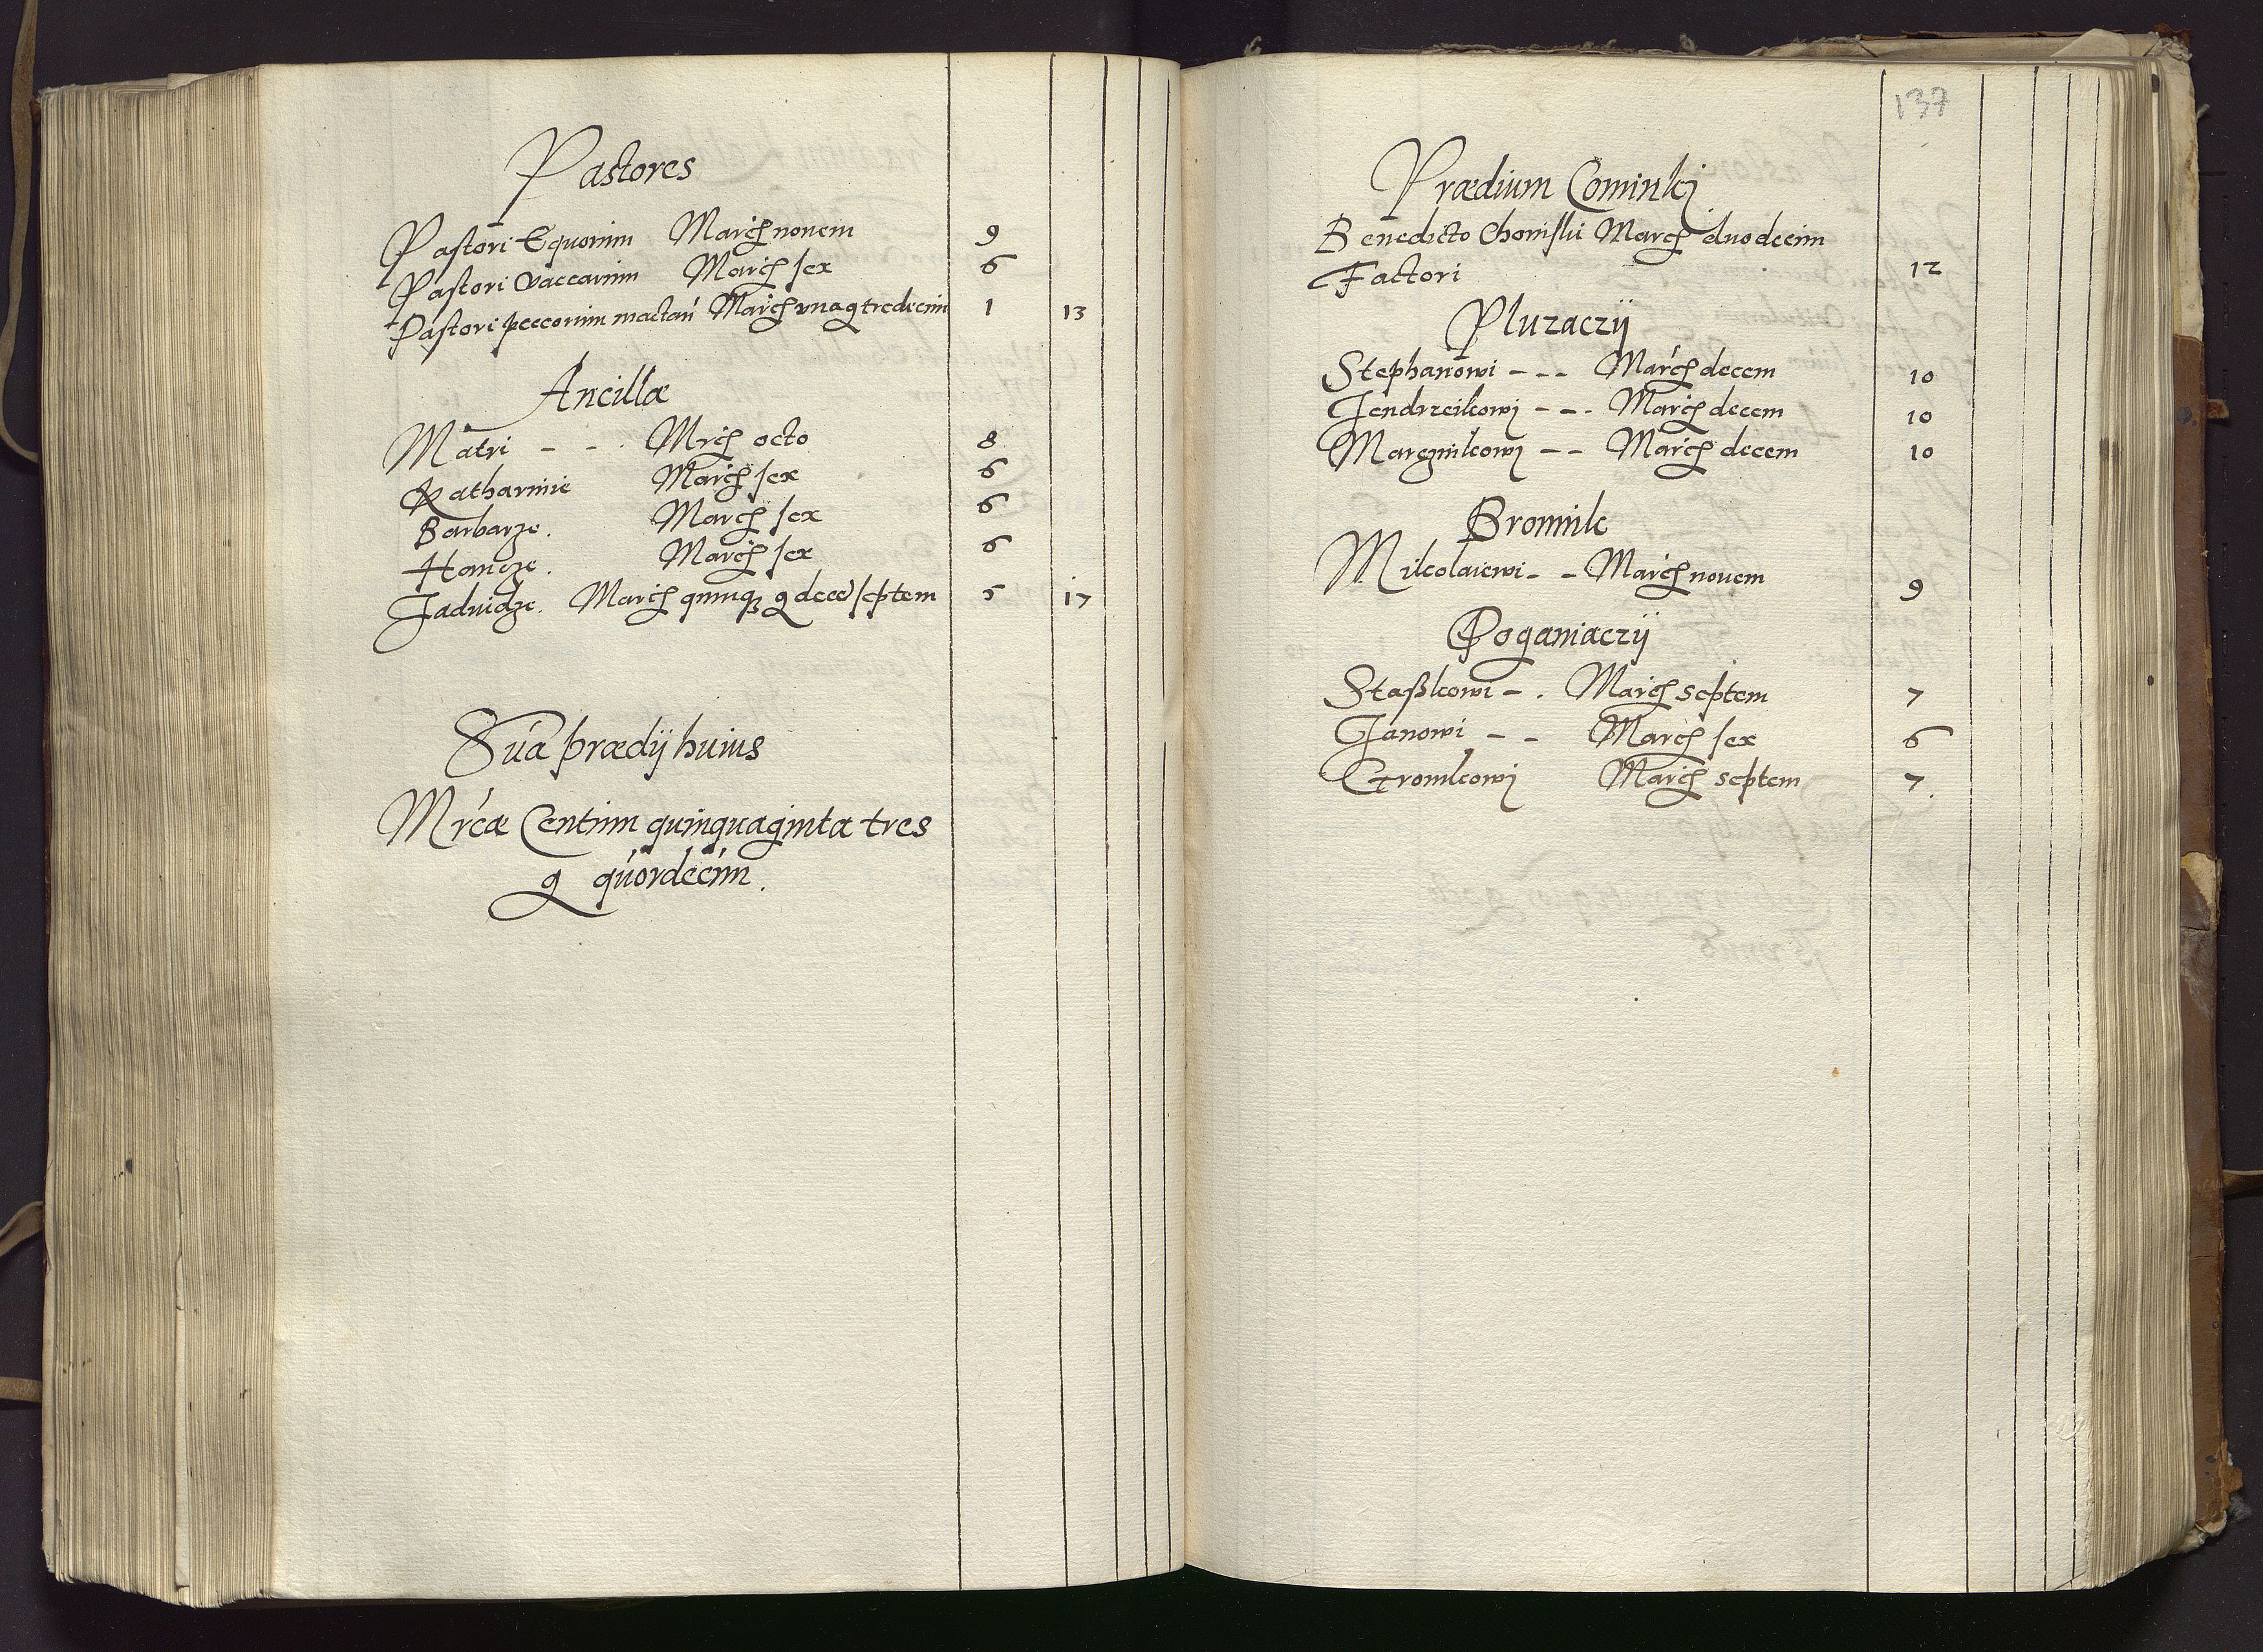 Pastores
Pastori Equorum March novem 9
Pastori vaccarum March sex 6
Pastori pecorum mactań March vna g tredecim 1 13
Ancillæ
Matri - - . Mrch octo 8
Katharinie March sex 6
Barbarze. March sex 6
Hancze. March sex 6
Jadvidze. March quinqз g dece septem 5 17
Sūa prædij huius
Mrcæ Centum quinquaginta tres
g quordecim.
137
Prædium Cominki
Benedicto Chomski March duodecim
Factori 12
Pluzaczij
Stephanowi - - - March decem 10
Jendrzeikowj - - . March decem 10
Marczinkowj - - March decem 10
Bronnik
Mikolaiewi - - March novem 9
Poganiaczij
Staßkowi - . March septem 7
Janowi - - March sex 6
Gromkowj March septem 7.